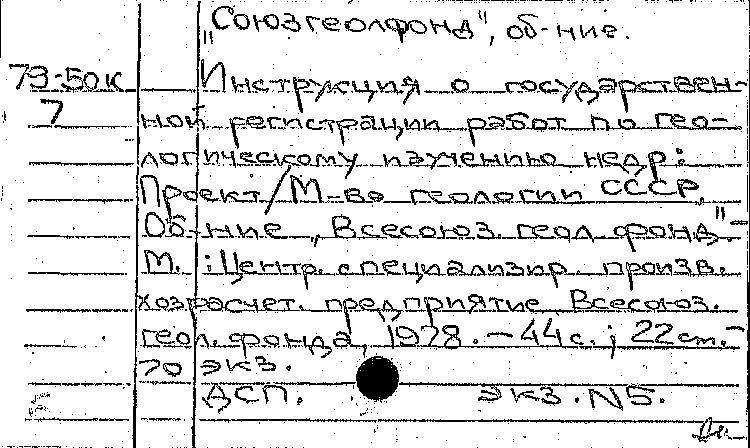 "Союзгеолфонд", об-ние.
79-50к Инструкция о государствен-
7 ной регистрации работ по гео-
логическому изучению недр:
Проект/М-во геологии СССР,
Об-ние „Всесоюз. геол. фонд."-
М.: Центр. специализир. произв.
хозрасчет. предприятие Всесоюз.
геол. фонда, 1978. - 44 с.; 22 см.-
70 экз.
ДСП. экз. N5.